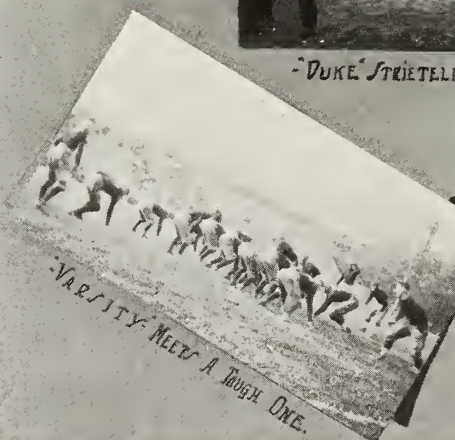 -"DUKE" STRIETEL
-VARSITY- MEETS A TOUGH ONE.